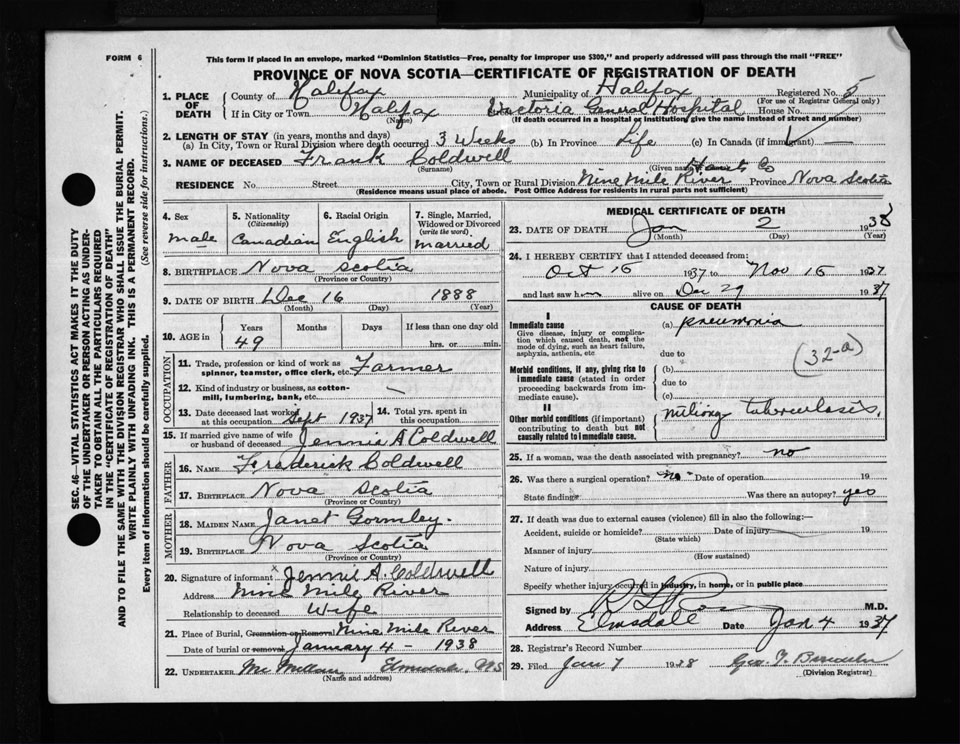 This form if placed in an envelope, marked "Dominion Statistics—Free, penalty for improper use $300," and properly addressed will pass through the mail "FREE"
FORM 6
PROVINCE OF NOVA SCOTIA—CERTIFICATE OF REGISTRATION OF DEATH
1. PLACE OF DEATH
County of Halifax Municipality of Halifax Registered No. 5
(For use of Registrar General only)
If in City or Town Halifax Victoria General Hospital House No.
(Name) (If death occurred in a hospital or institution, give the name instead of street and number)
2. LENGTH OF STAY (in years, months and days)
(a) In City, Town or Rural Division where death occurred 3 Weeks (b) In Province Life (c) In Canada (if immigrant) —
3. NAME OF DECEASED Frank Coldwell
(Surname) (Given name) Hants Co
RESIDENCE No. Street City, Town or Rural Division Nine Mile River Province Nova Scotia
(Residence means usual place of abode. Post Office Address for residents in rural parts not sufficient)
4. Sex
male
5. Nationality
(Citizenship)
Canadian
6. Racial Origin
English
7. Single, Married, Widowed or Divorced
(write the word)
married
8. BIRTHPLACE Nova Scotia
(Province or Country)
9. DATE OF BIRTH Dec 16 1888
(Month) (Day) (Year)
10. AGE in Years Months Days If less than one day old
49 hrs. or min.
OCCUPATION
11. Trade, profession or kind of work as spinner, teamster, office clerk, etc. Farmer
12. Kind of industry or business, as cotton-mill, lumbering, bank, etc. —
13. Date deceased last worked at this occupation Sept 1937
14. Total yrs. spent in this occupation
15. If married give name of wife or husband of deceased Jennie A Coldwell
FATHER
16. NAME Frederick Coldwell
17. BIRTHPLACE Nova Scotia
(Province or Country)
MOTHER
18. MAIDEN NAME Janet Gormley.
19. BIRTHPLACE Nova Scotia
(Province or Country)
20. Signature of informant x Jennie A. Coldwell
Address Nine Mile River
Relationship to deceased Wife
21. Place of Burial, Cremation or Removal Nine Mile River
Date of burial or removal January 4 - 1938
22. UNDERTAKER McMillan Elmsdale, NS
(Name and address)
MEDICAL CERTIFICATE OF DEATH
23. DATE OF DEATH Jan 2 1938
(Month) (Day) (Year)
24. I HEREBY CERTIFY that I attended deceased from:
Oct 15 1937 to Nov 15 1937
and last saw him alive on Dec 29 1937
CAUSE OF DEATH
I
Immediate cause
Give disease, injury or complication which caused death, not the mode of dying, such as heart failure, asphyxia, asthenia, etc
(a) pneumonia
due to
(32-a)
Morbid conditions, if any, giving rise to immediate cause (stated in order proceeding backwards from immediate cause).
(b)
due to
(c)
II
Other morbid conditions (if important) contributing to death but not causally related to immediate cause.
tuberculosis.
25. If a woman, was the death associated with pregnancy? no
26. Was there a surgical operation? no Date of operation 19
State findings Was there an autopsy? yes
27. If death was due to external causes (violence) fill in also the following:—
Accident, suicide or homicide? Date of injury 19
(State which)
Manner of injury
(How sustained)
Nature of injury
Specify whether injury occurred in industry, in home, or in public place
Signed by M.D.
Address Elmsdale Date Jan 4 1937
28. Registrar's Record Number
29. Filed Jan 7 1938 Geo. T.
(Division Registrar)
SEC. 46—VITAL STATISTICS ACT MAKES IT THE DUTY
OF THE UNDERTAKER OR PERSON ACTING AS UNDERTAKER TO OBTAIN ALL THE PARTICULARS REQUIRED
IN THE "CERTIFICATE OF REGISTRATION OF DEATH"
AND TO FILE THE SAME WITH THE DIVISION REGISTRAR WHO SHALL ISSUE THE BURIAL PERMIT.
WRITE PLAINLY WITH UNFADING INK. THIS IS A PERMANENT RECORD.
Every item of information should be carefully supplied. (See reverse side for instructions.)